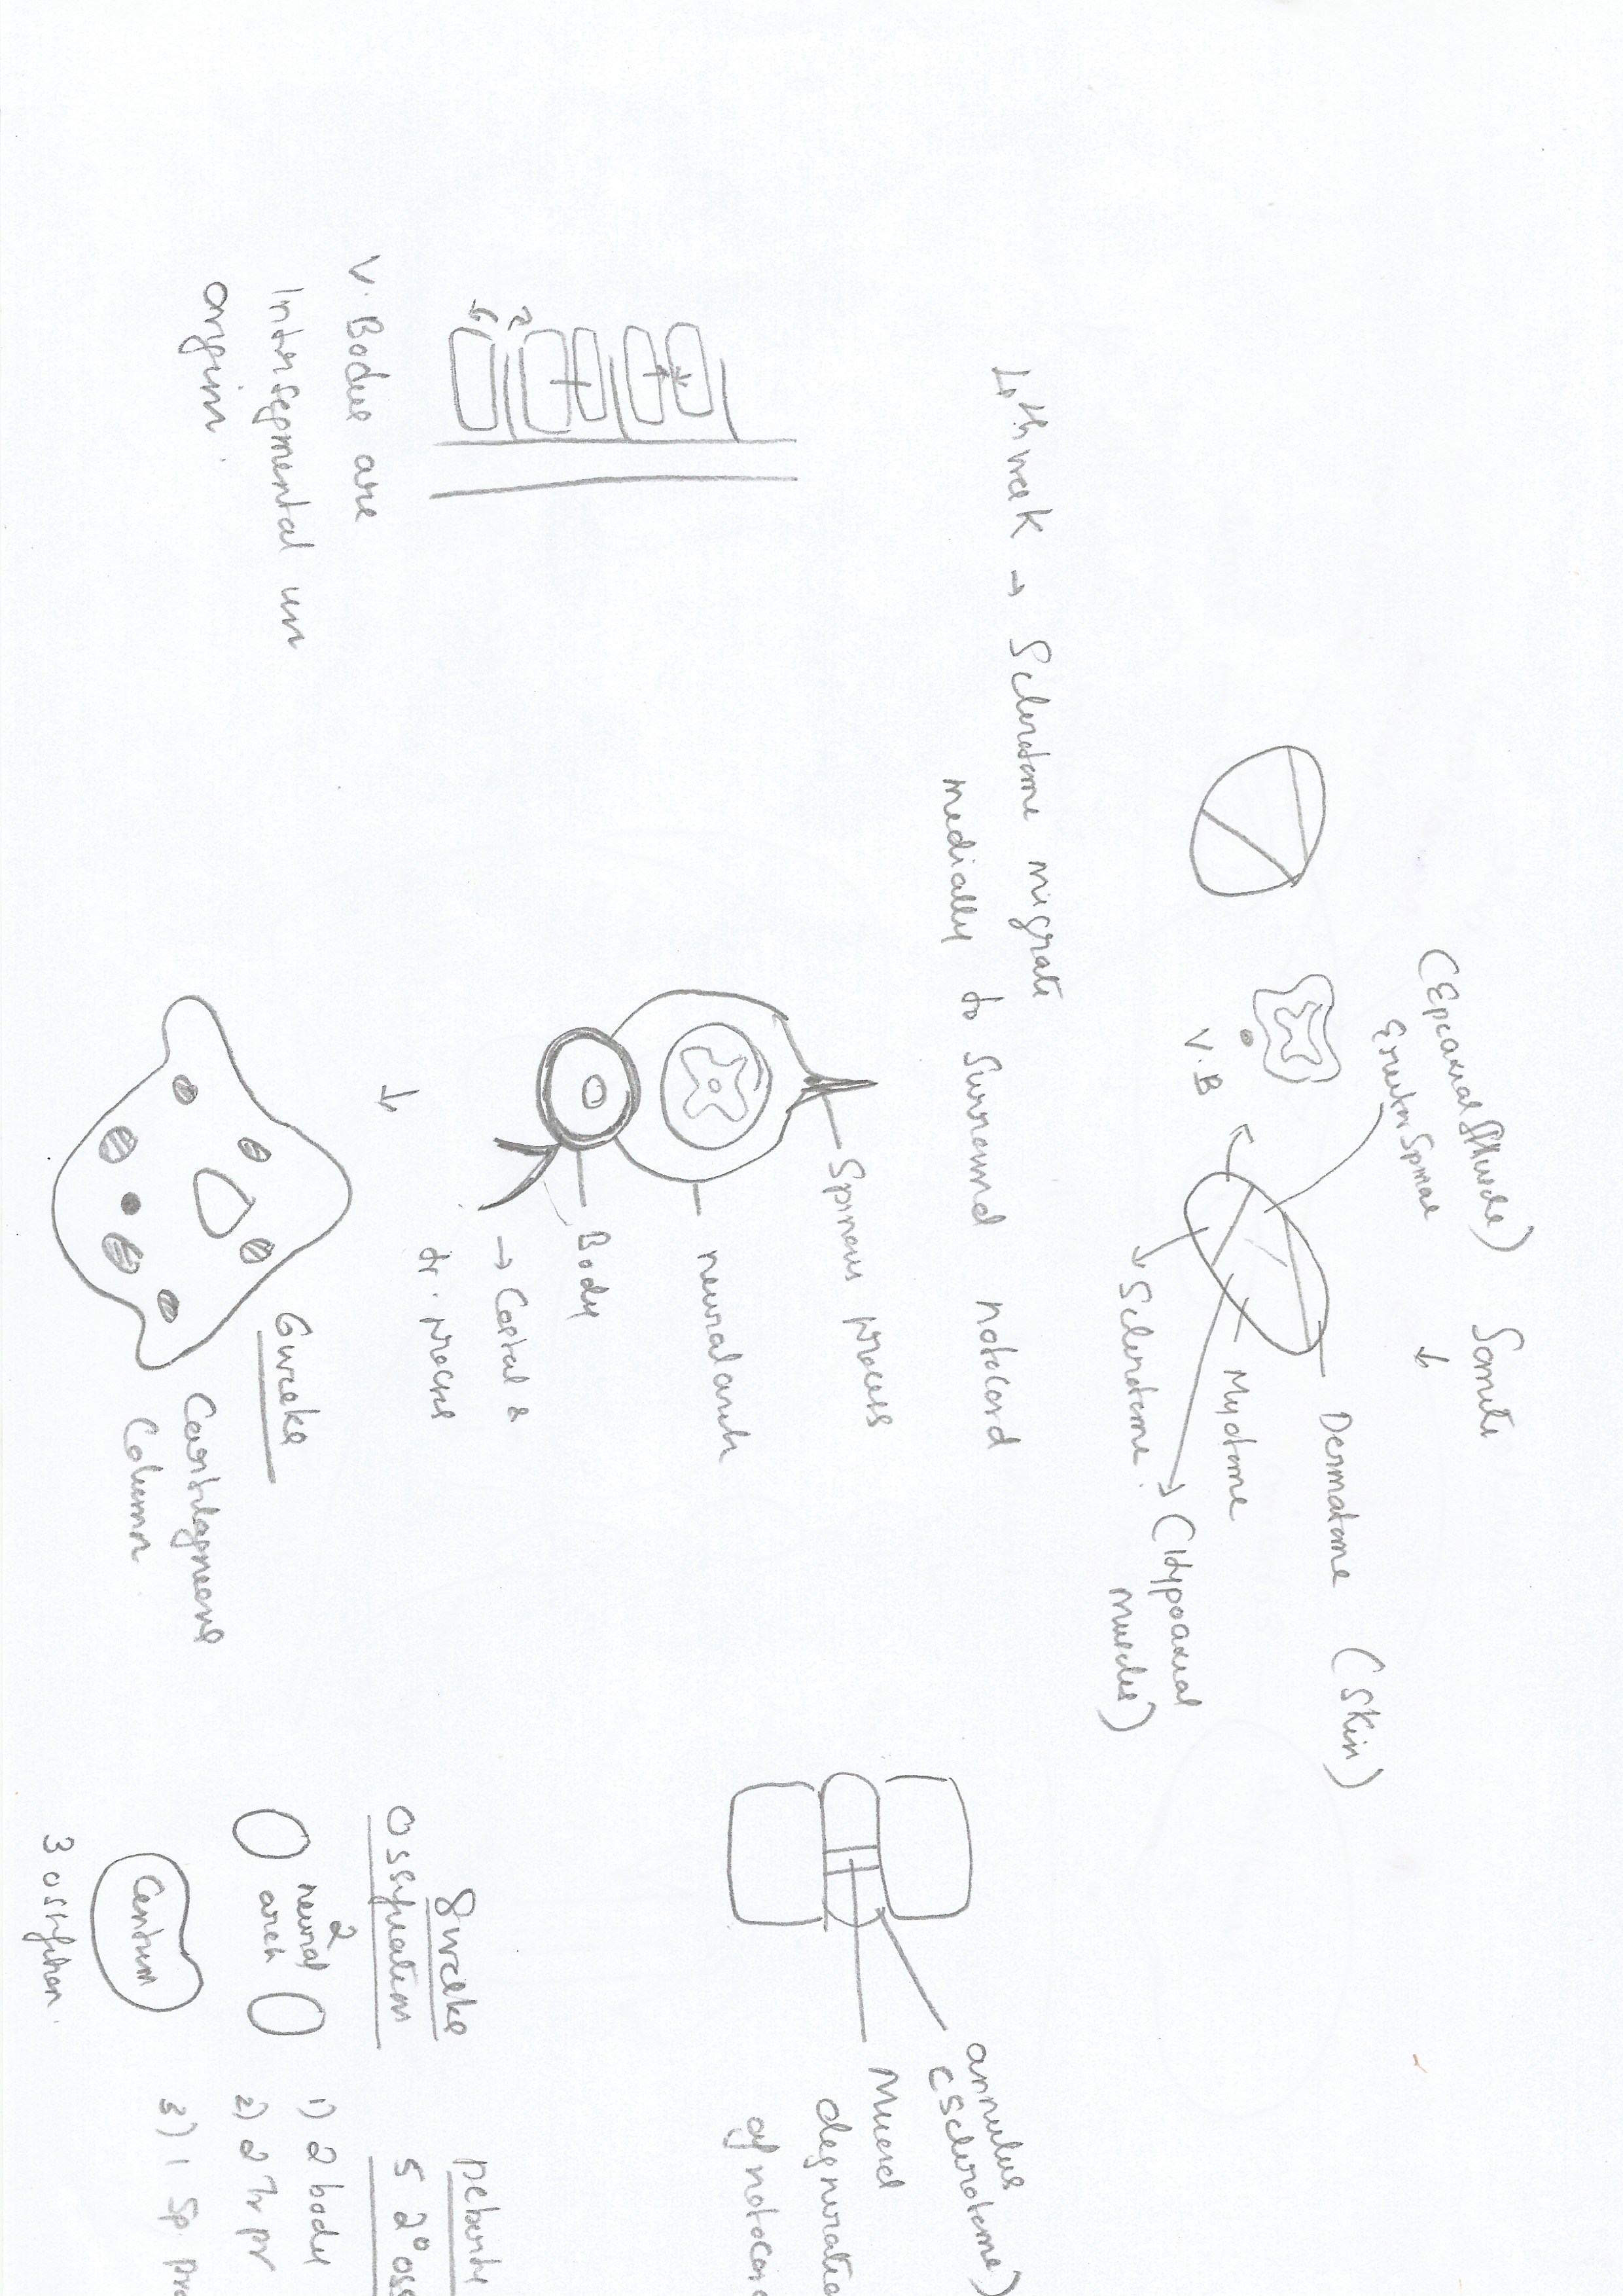 Somite
↓
(Epiaxial Muscle)
Erector Spinae
Dermatome (Skin)
Myotome
(Hypoaxial
muscles)
Sclerotome.
V.B
4th week → Sclerotome migrate
medially to Surround notocord
Spinous process
neural arch
Body
→ Costal &
tr. process
↓
annulus
(sclerotome)
Mucoid
degneratio
of notocor
V. Bodies are
Intersegmental in
origin.
6 weeks
Cartilagneous
Column
8 weeks
Ossification
2
neural
arch
Centrum
3 ossification.
puberty
5 2° oss
1) 2 body
2) 2 Tr pr
3) 1 Sp. pro